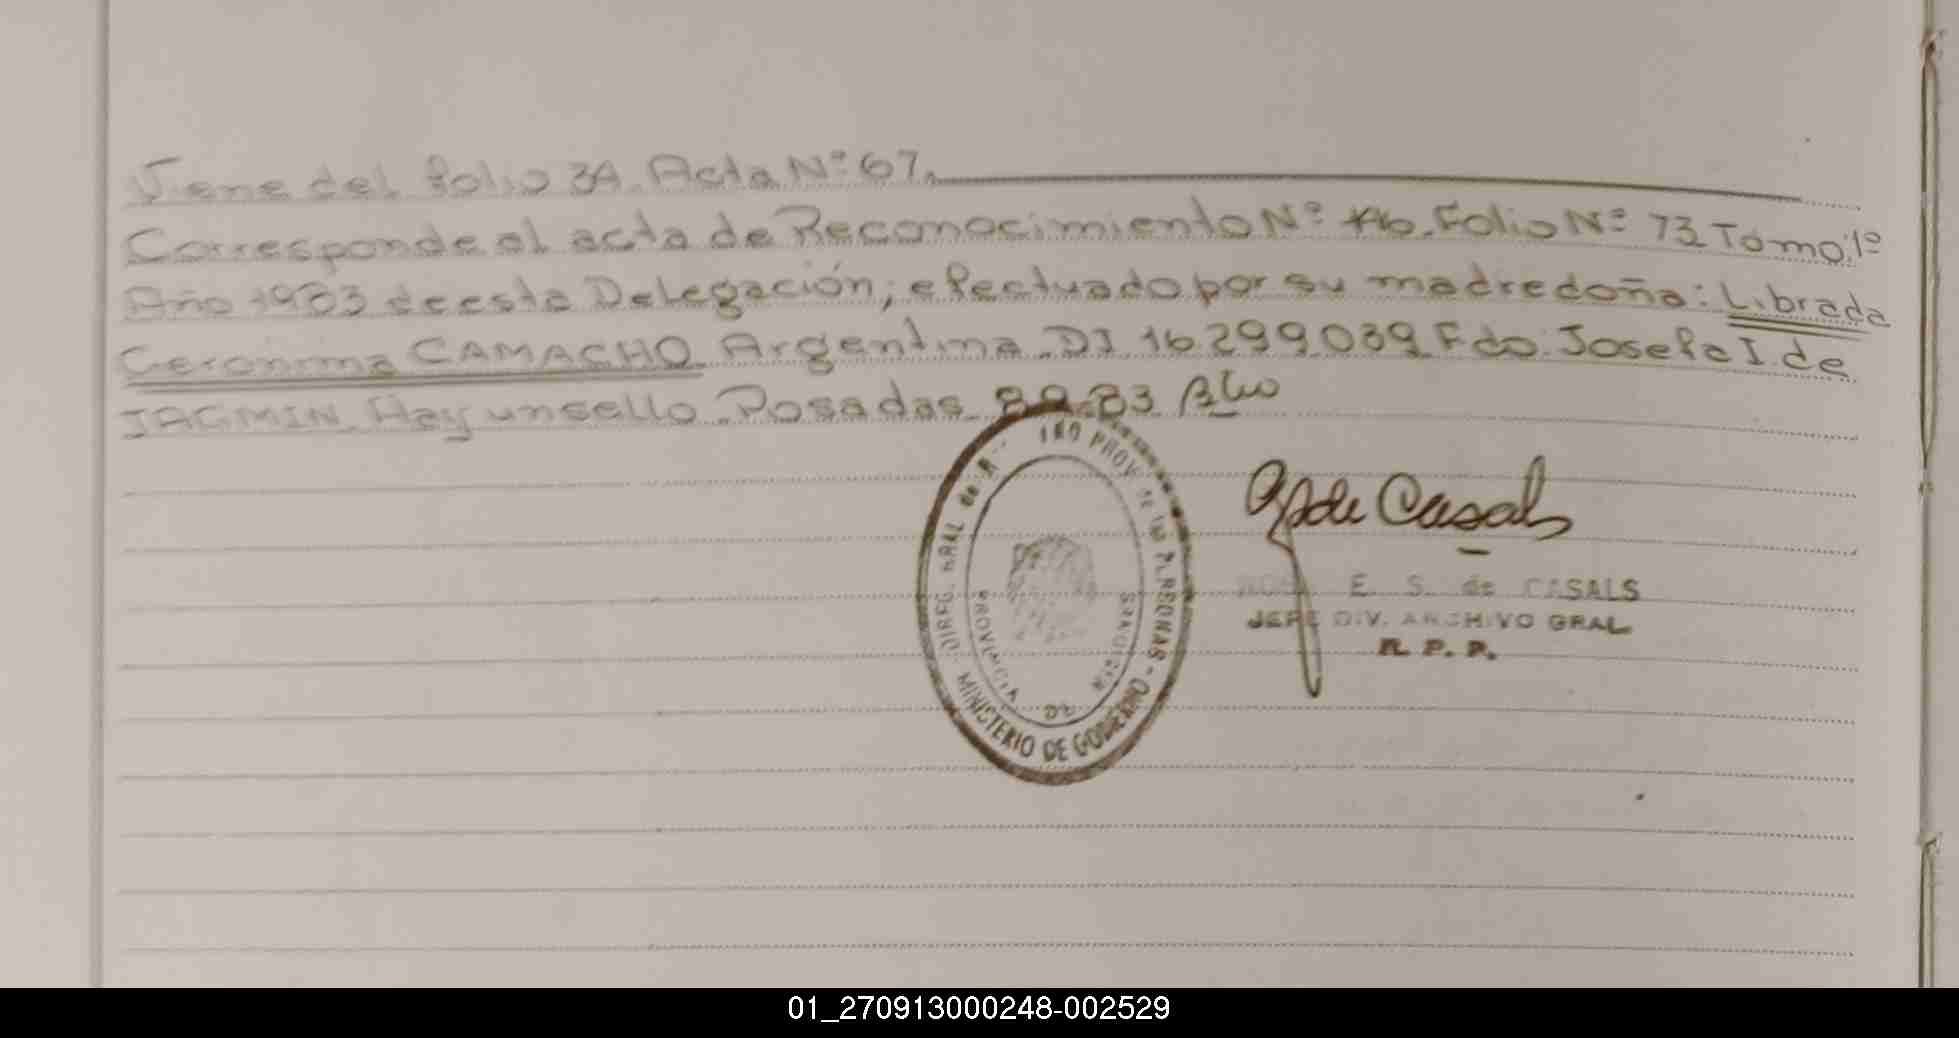 Viene del folio 34. Acta Nº 67.
Corresponde al acta de Reconocimiento Nº 146. Folio Nº 73 Tomo: 1º
Año 1983 de esta Delegación; efectuado por su madre doña: Librada
Geronima CAMACHO. Argentina. DI 16.299.039 Fdo. Josefa I. de
JAGMIN. Hay un sello. Posadas
DIREC. GRAL de
PROV. DE LAS PERSONAS - MINISTERIO DE GOBIERNO
PROVINCIA DE MISIONES
de Casals
E. S. de CASALS
JEFE DIV. ARCHIVO GRAL
R. P. P.
01_270913000248-002529